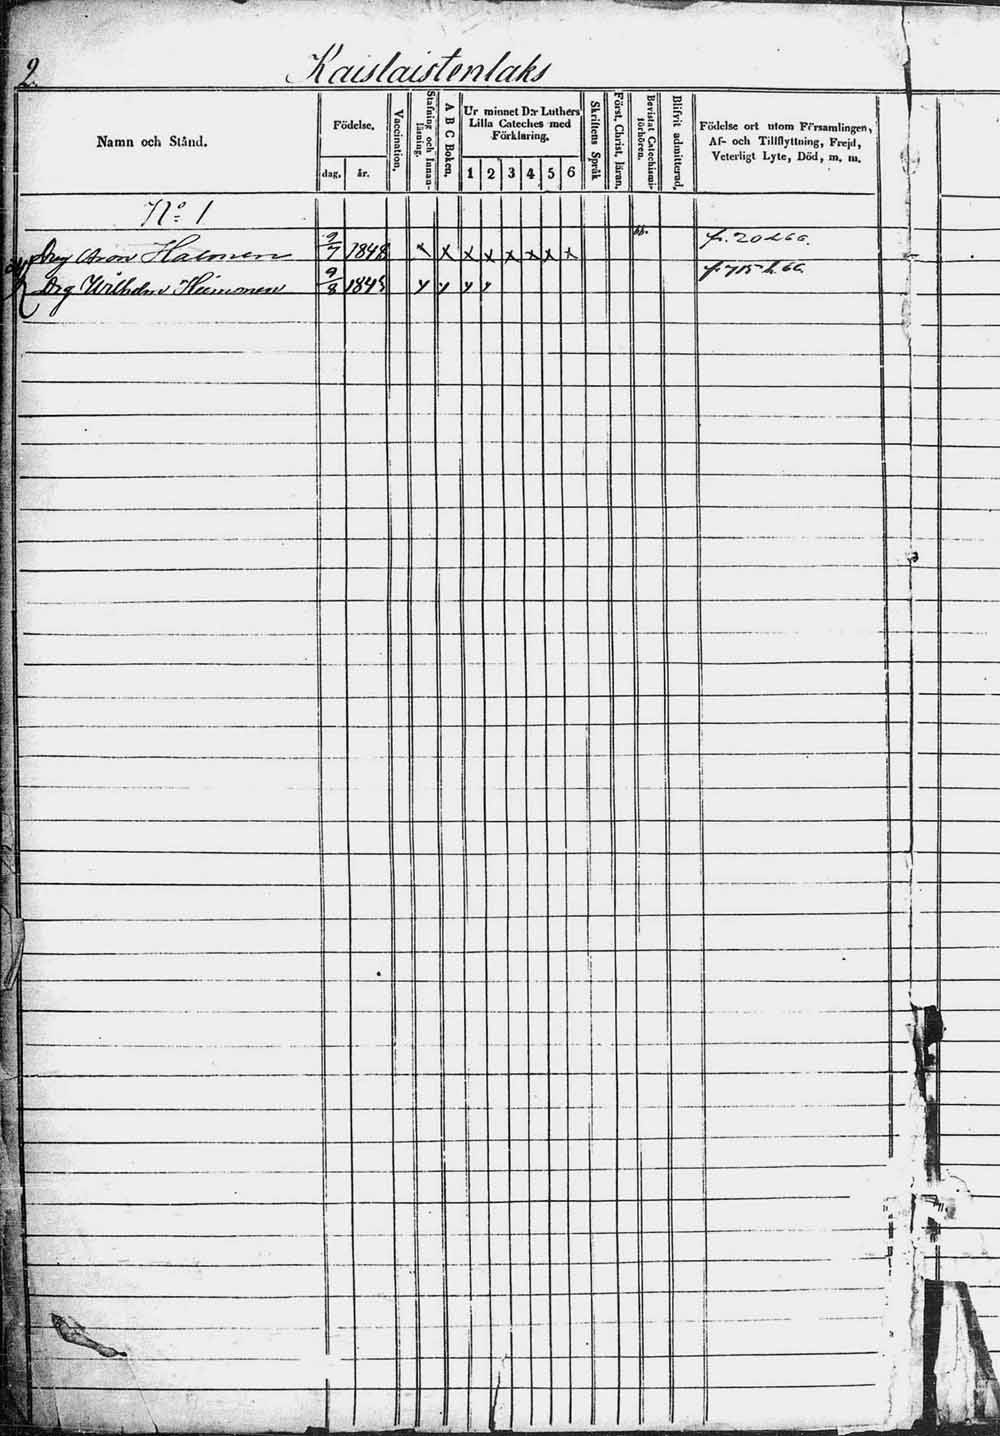 2.
Kaislaistenlaks
Namn och Stånd.
Födelse.
dag.
år.
Vaccination.
Stafning och Innan-
läsning.
A B C Boken.
Ur minnet D:r Luthers
Lilla Cateches med
Förklaring.
1 2 3 4 5 6
Skriftens Språk
Först. Christ. läran.
Bevistat Catechismi-
förhören.
Blifvit admitterad.
Födelse ort utom Församlingen,
Af- och Tillflyttning, Frejd,
Veterligt Lyte, Död, m. m.
No 1
Drg Aron 9/7 1848 x x x x x x x x 66.
Drg Wilhelm 9/8 184 y y y y